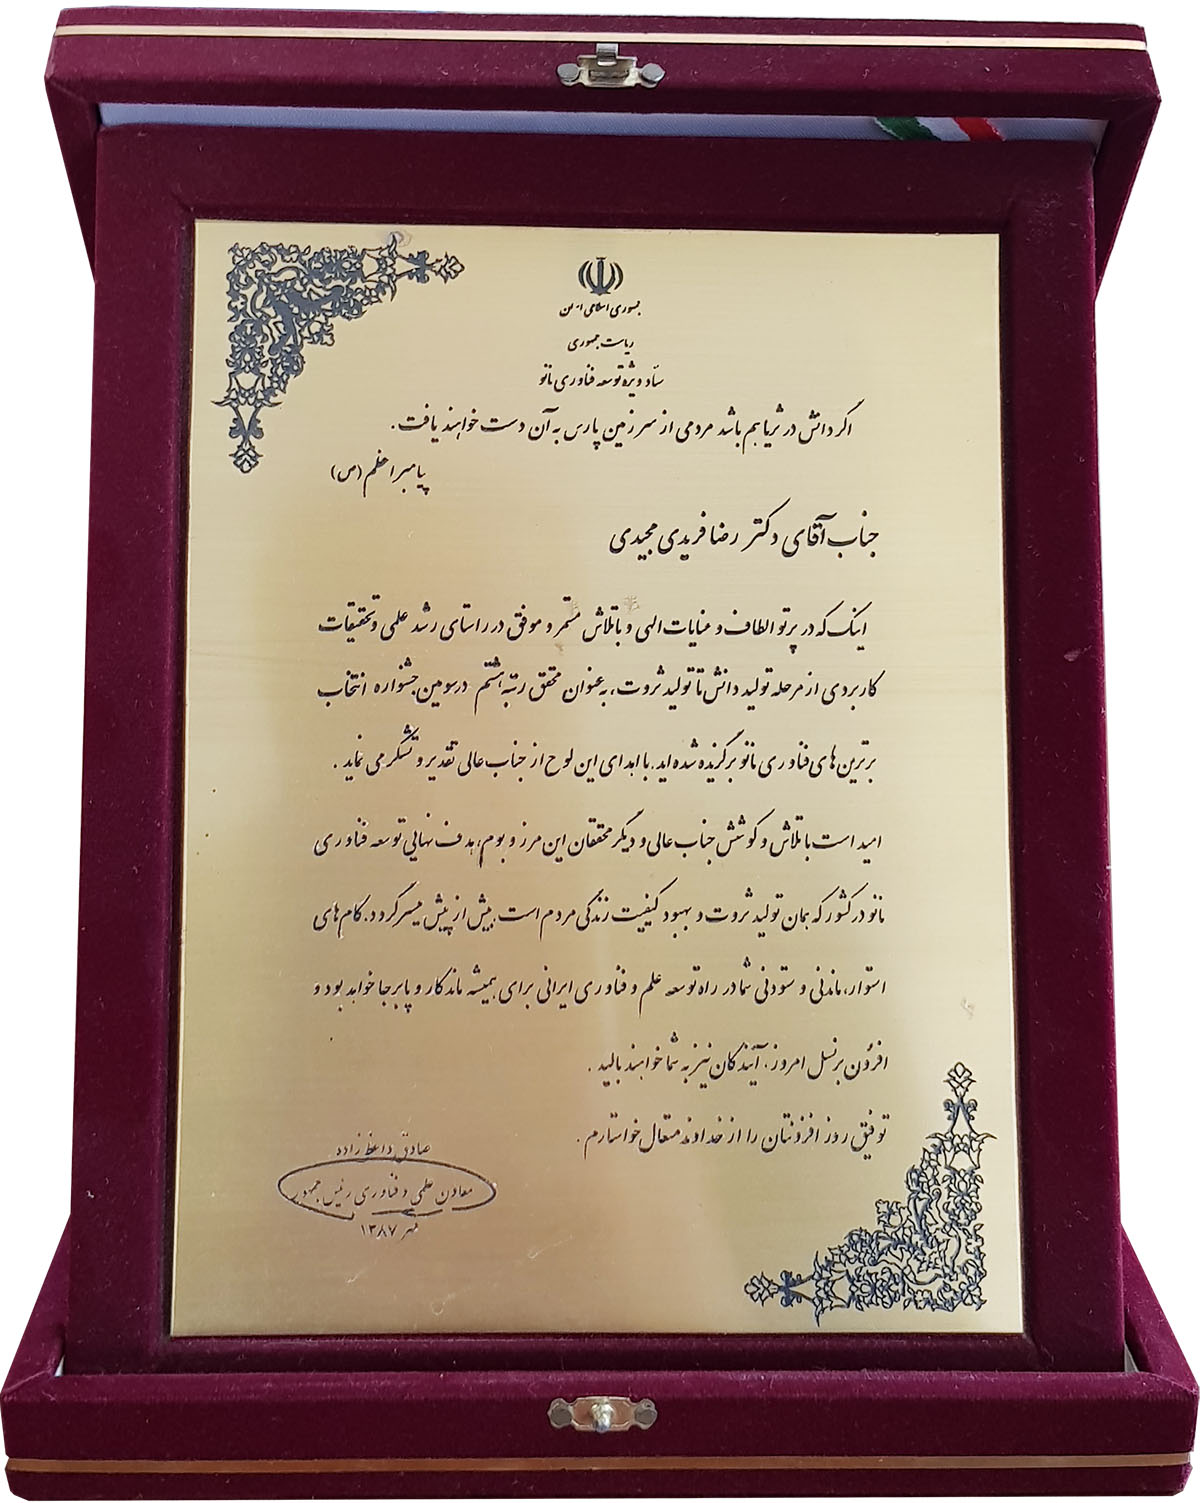 جمهوری اسلامی ایران
ریاست جمهوری
ستاد ویژه توسعه فناوری نانو
اگر دانش در ثریا هم باشد مردمی از سرزمین پارس به آن دست خواهند یافت.
پیامبر اعظم (ص)
جناب آقای دکتر رضا فریدی مجیدی
اینک که در پرتو الطاف و عنایات الهی و با تلاش مستمر و موفق در راستای رشد علمی و تحقیقات
کاربردی از مرحله تولید دانش تا تولید ثروت، به عنوان محقق رتبه هشتم در سومین جشنواره انتخاب
برترین های فناوری نانو برگزیده شده اید. با اهدای این لوح از جناب عالی تقدیر و تشکر می نماید.
امید است با تلاش و کوشش جناب عالی و دیگر محققان این مرز و بوم، هدف نهایی توسعه فناوری
نانو در کشور که همان تولید ثروت و بهبود کیفیت زندگی مردم است بیش از پیش میسر گردد. گام های
استوار، ماندنی و ستودنی شما در راه توسعه علم و فناوری ایرانی برای همیشه ماندگار و پابرجا خواهد بود و
افزون بر نسل امروز، آیندگان نیز به شما خواهند بالید.
توفیق روز افزونتان را از خداوند متعال خواستارم.
صادق واعظ زاده
معاون علمی و فناوری رئیس جمهور
مهر ۱۳۸۷